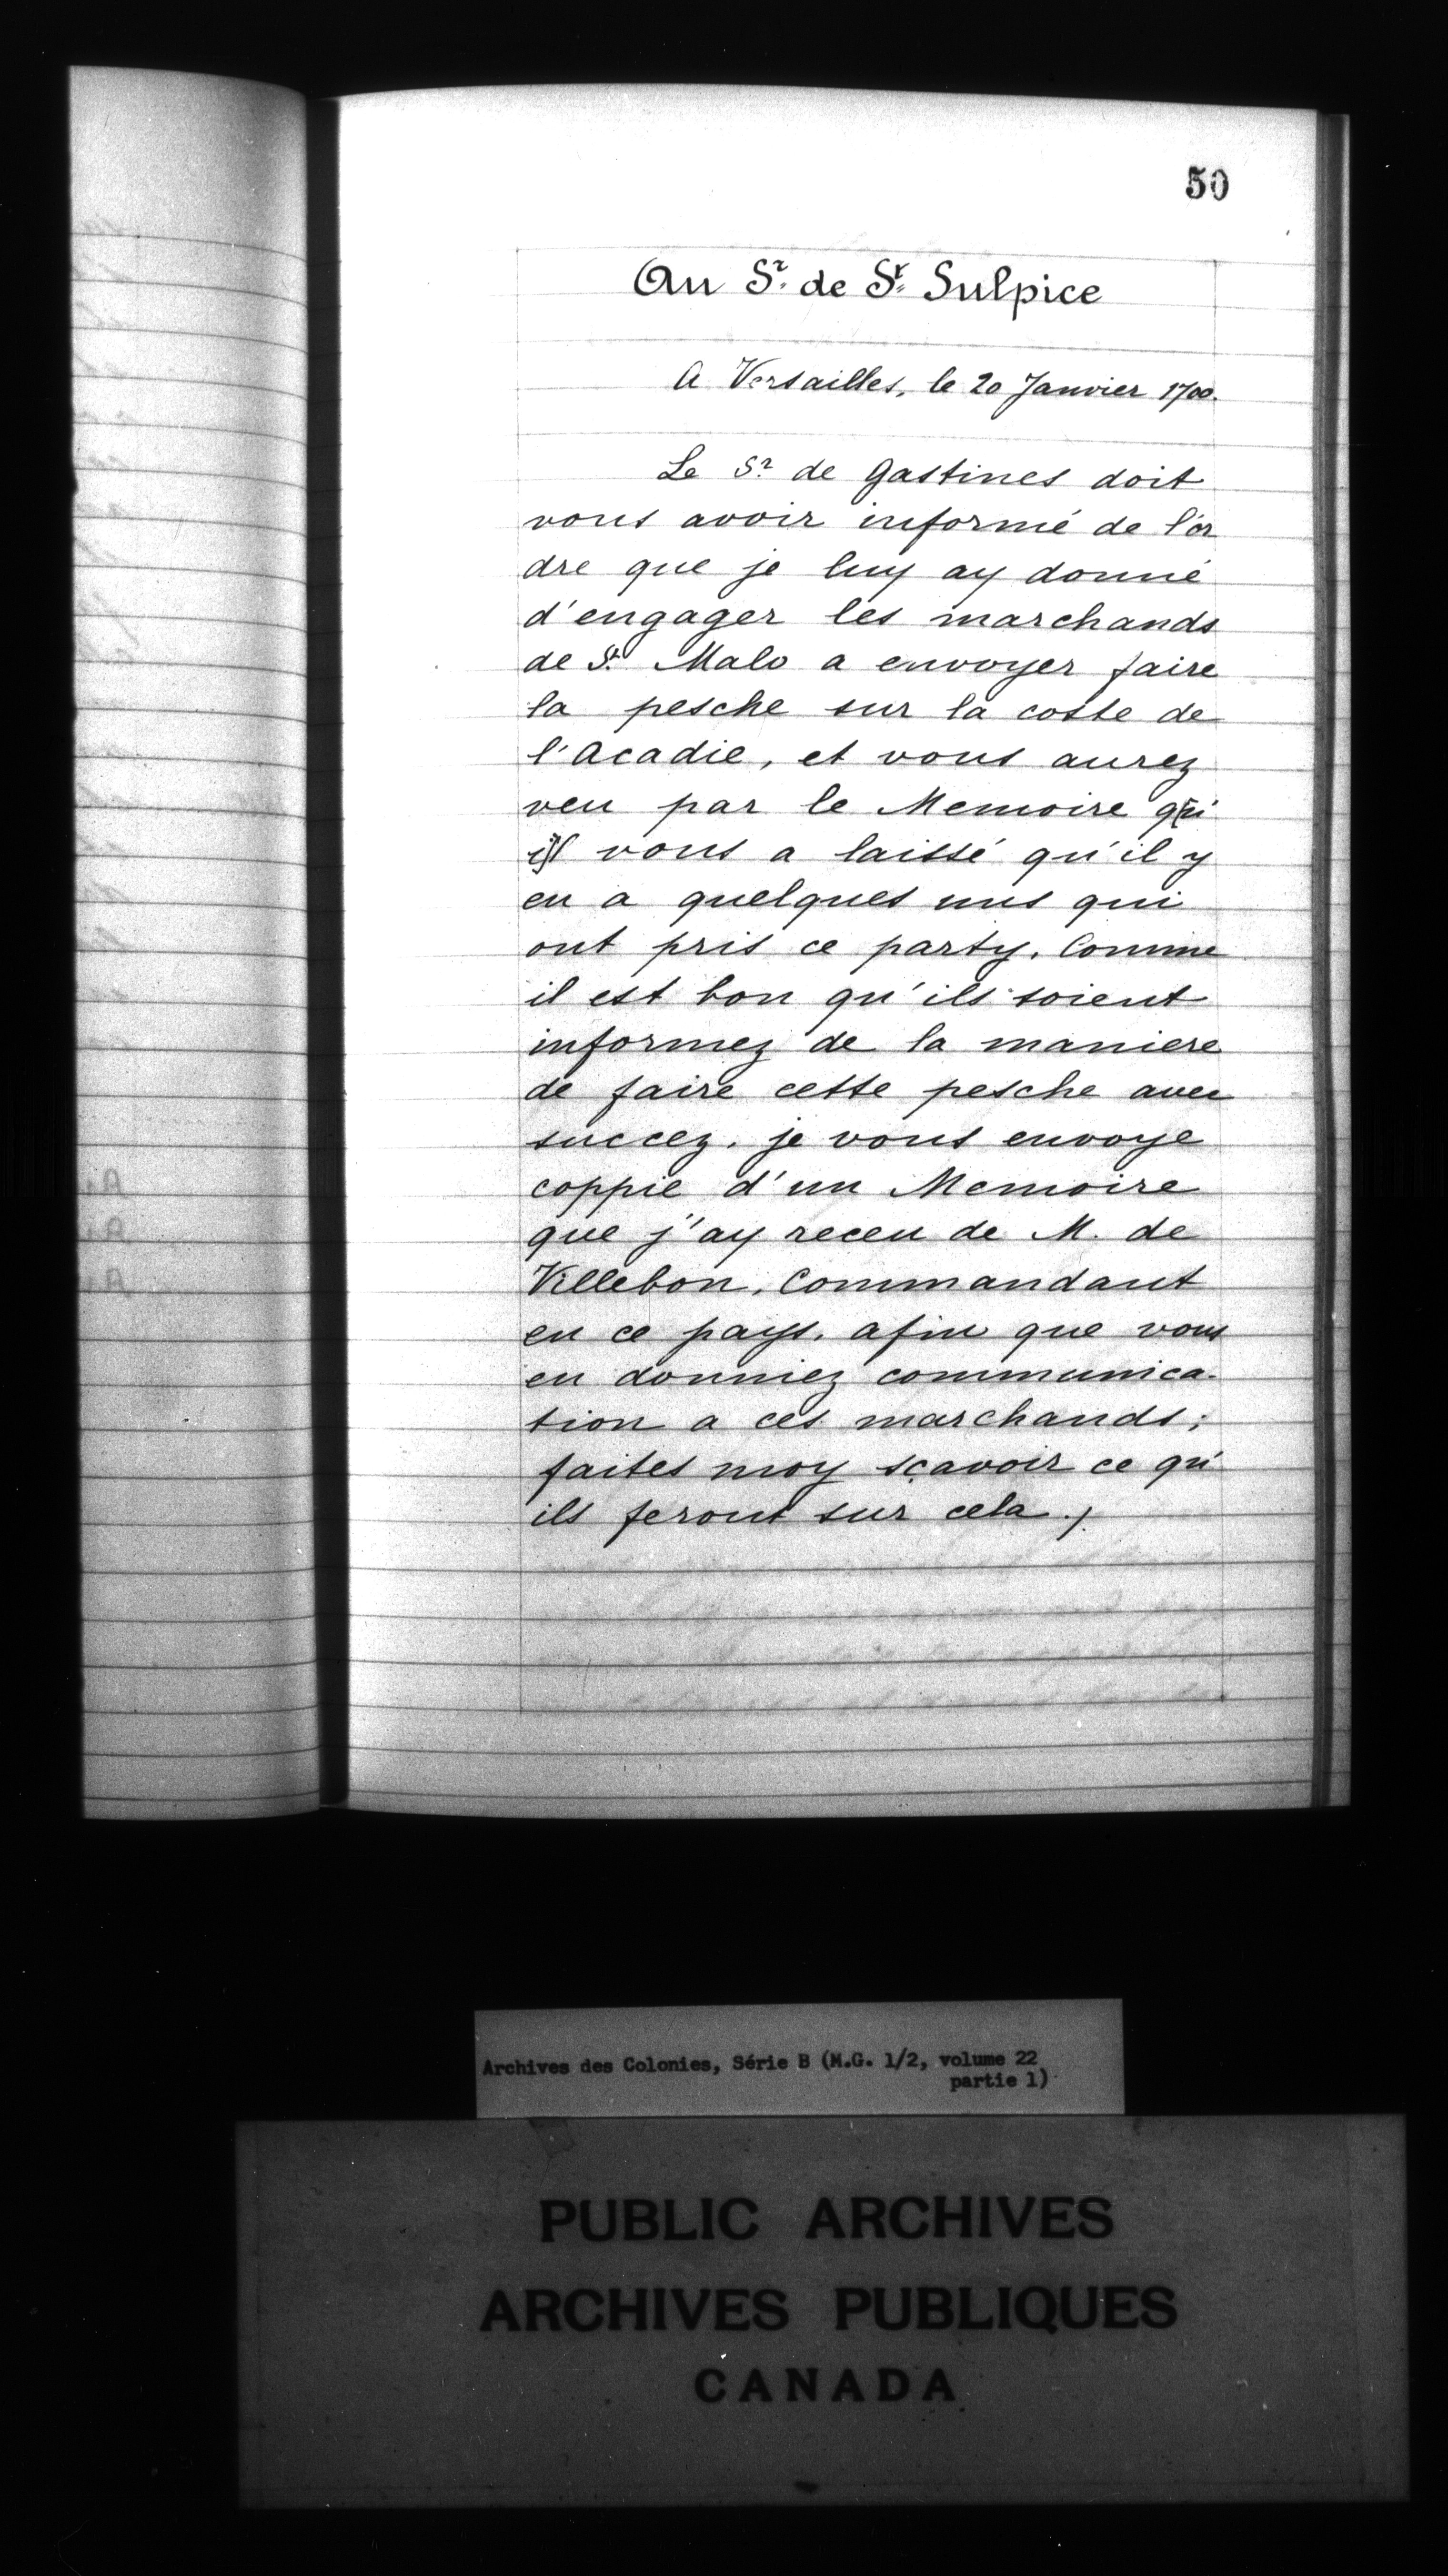 50
Au Sr. de St. Sulpice
A Versailles, le 20 Janvier 1700.
Le Sr. de Gastines doit
vous avoir informé de l'or
dre que je luy ay donné
d'engager les marchands
de St. Malo a envoyer faire
la pesche sur la coste de
l'Acadie, et vous aurez
veu par le Memoire qu'
il vous a laissé qu'il y
en a quelques uns qui
ont pris ce party. Comme
il est bon qu'ils soient
informez de la maniere
de faire cette pesche avec
succez, je vous envoye
coppie d'un Memoire
que j'ay receu de M. de
Villebon, Commandant
en ce pays, afin que vous
en donniez communica-
tion a ces marchands;
faites moy sçavoir ce qu'
ils feront sur cela ./.
Archives des Colonies, Série B (M.G. 1/2, volume 22
partie 1)
PUBLIC ARCHIVES
ARCHIVES PUBLIQUES
CANADA